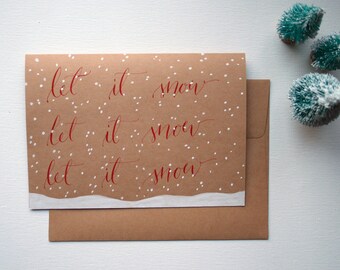 let it snow
let it snow
let it snow